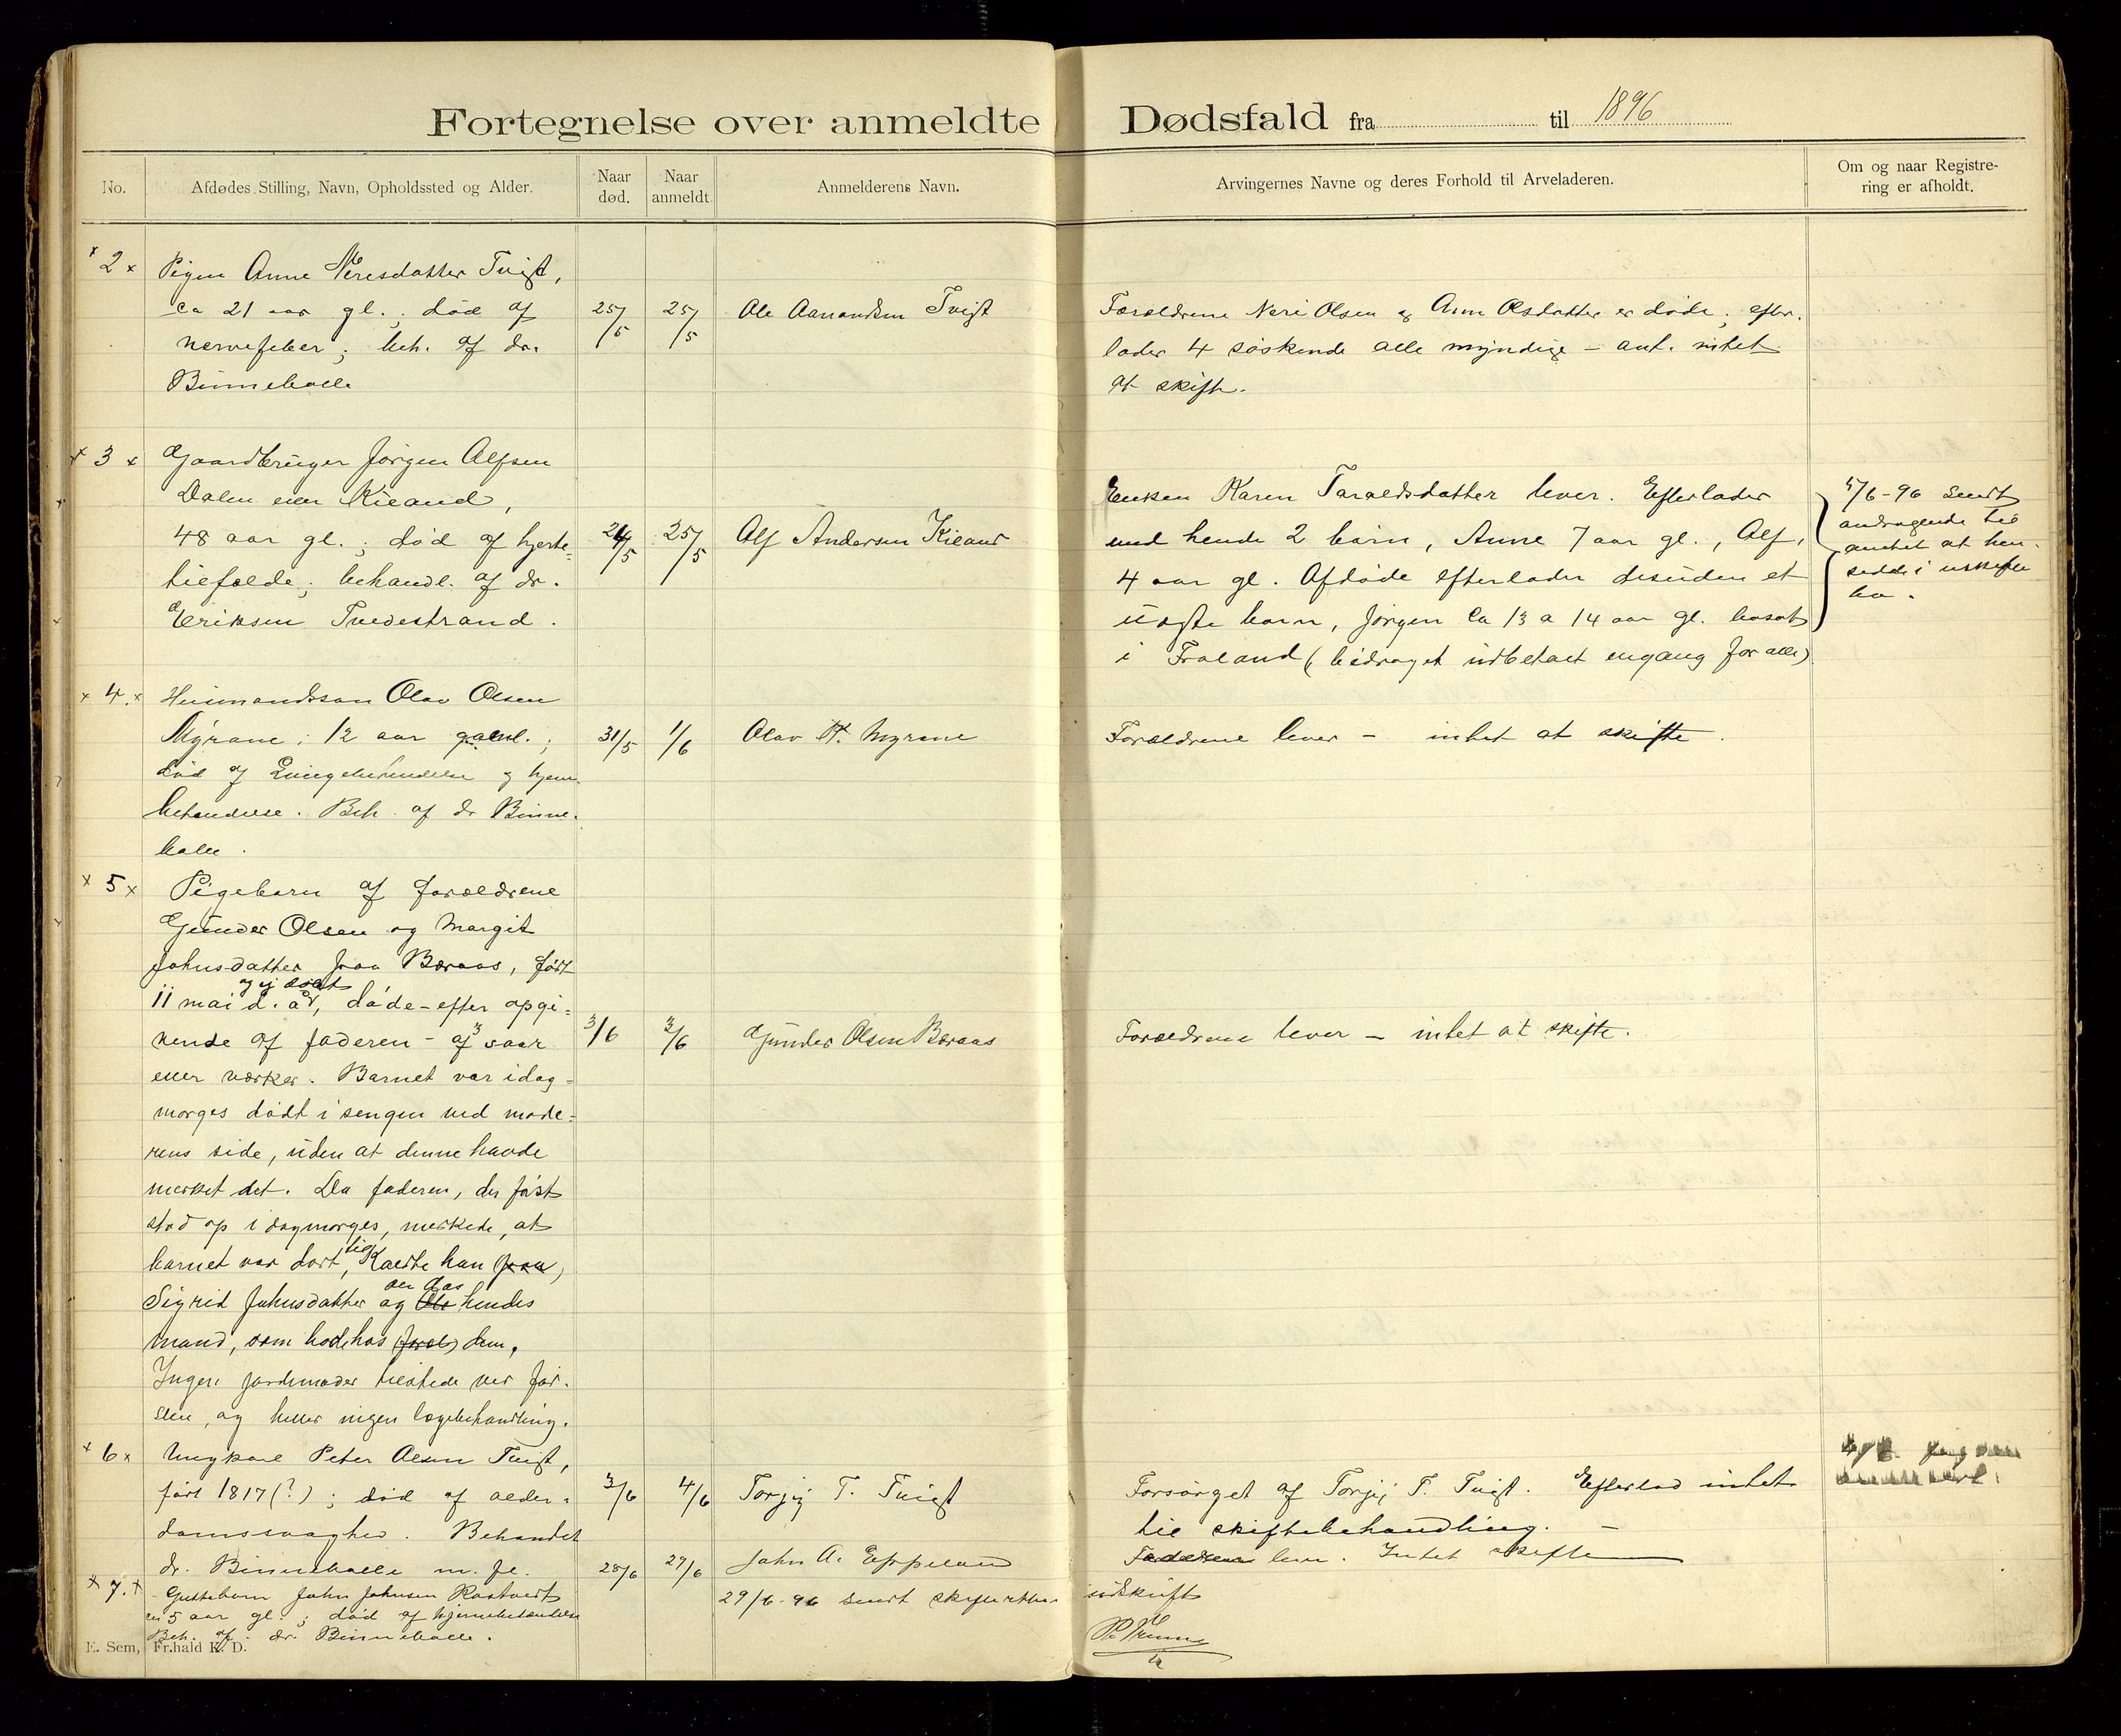 Fortegnelse over anmeldte Dødsfald fra til 1896
No. Afdødes Stilling, Navn, Opholdssted og Alder. Naar død. Naar anmeldt. Anmelderens Navn. Arvingernes Navne og deres Forhold til Arveladeren. Om og naar Registrering er afholdt.
x 2 x Pigen Anne Neresdatter Tveit,
ca 21 aar gl.; død af 25/5 25/5 Ole Aanondsen Tveit
nervefeber; beh. af dr.
Binneballe
Forældrene Neri Olsen og Anne Olsdatter er døde; efter-
lader 4 søskende alle myndige – ant. intet
at skifte.
x 3 x Gaardbruger Jørgen Alfsen
Dalen Kileand,
48 aar gl.; død af hjerte- 24/5 25/5 Alf Andersen Kileand
tilfælde; behandl. af dr.
Eriksen Tvedestrand.
Enken Karen Taraldsdatter lever. Efterlader
med hende 2 børn, Anne 7 aar gl., Alf,
4 aar gl. Afdøde efterlader desuden et
uægte barn, Jørgen ca 13 a 14 aar gl. bosat
i Froland (bidraget udbetalt engang for alle)
5/6-96 sendt
andragende til
amtet at hen-
sidde i uskiftet
bo.
x 4. x Husmandssøn Olav Olsen
Myrane; 12 aar gaml.; 31/5 1/6 Olav Myrane Forældrene lever – intet at skifte.
død af Lungebetændelse og hjerne-
betændelse. Beh. af dr Binne-
balle.
x 5 x Pigebarn af forældrene
Gunder Olsen og Margit
Johnsdatter fraa Boraas, født
og ej døbt
11 mai d. år, døde – efter opgi-
vende af faderen – af saar 3/6 3/6 Gunder Olsen Boraas Forældrene lever – intet at skifte.
eller værker. Barnet var idag-
morges dødt i sengen ved mode-
rens side, uden at denne havde
merket det. Da faderen, der først
stod op i dagmorges, merkede, at
barnet var dørt, tilkaldte han
Sigrid Johnsdatter og hendes
mand, som bode hos dem.
Ingen jordemoder tilstede ved før-
slen, og heller ingen lægebehandling.
x 6 x Ungkarl Peter Olsen Tveit,
født 1817(?); død af alder- 3/6 4/6 Torjej T. Tveit Forsørget af Torjej T. Tveit. Efterlod intet
domssvaghed. Behandlet til skiftebehandling. –
dr. Binneballe m. fl.
x 7. x Gutteborn John Johnsen Rostveit 28/6 29/6 John A. Eppeland Forældrene lever. Intet skifte
5 aar gl.; død af hjernebetændelse 29/6-96 sendt skifteretten udskrift
Beh. af dr. Binneballe.
E. Sem, Fr.hald K. D.